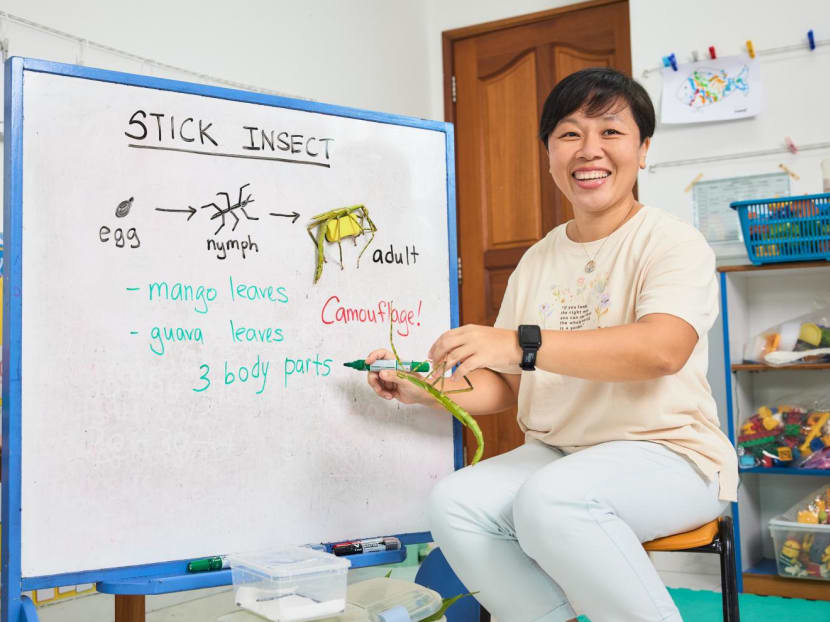 STICK INSECT
egg
nymph
adult
- mango leaves
Camouflage!
- guava leaves
3 body parts